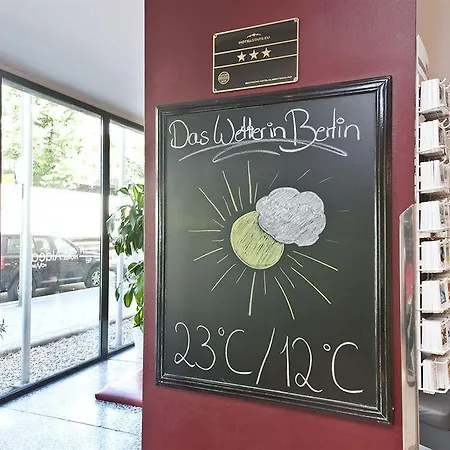 HOTELSTARS.EU
Das Wetter in Berlin
23°C/12°C